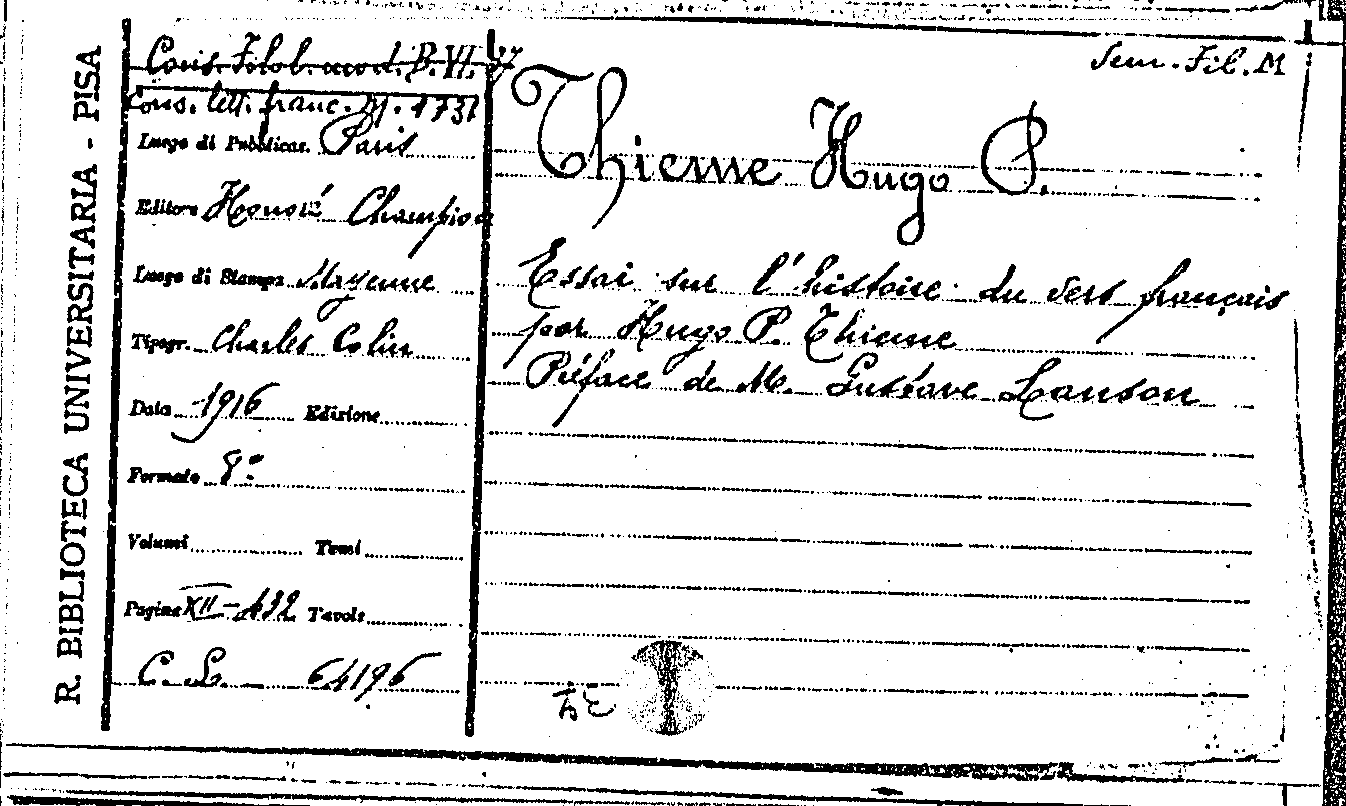 R. BIBLIOTECA UNIVERSITARIA - PISA
Cons. Filol. mod. B. VI. 27
Cons. lett. franc. M. 1731
Luogo di Pubblicaz. Paris
Editore Honoré Champion
Luogo di Stampa Mayenne
Tipogr. Charles Colin
Data 1916 Edizione
Formato 8°
Volumi Tomi
Pagine XII-432 Tavole
C. L. 64196
Sem. Fil. M
Thieme Hugo P.
Essai sur l'histoire du vers français
par Hugo P. Thieme
Préface de M. Gustave Lanson